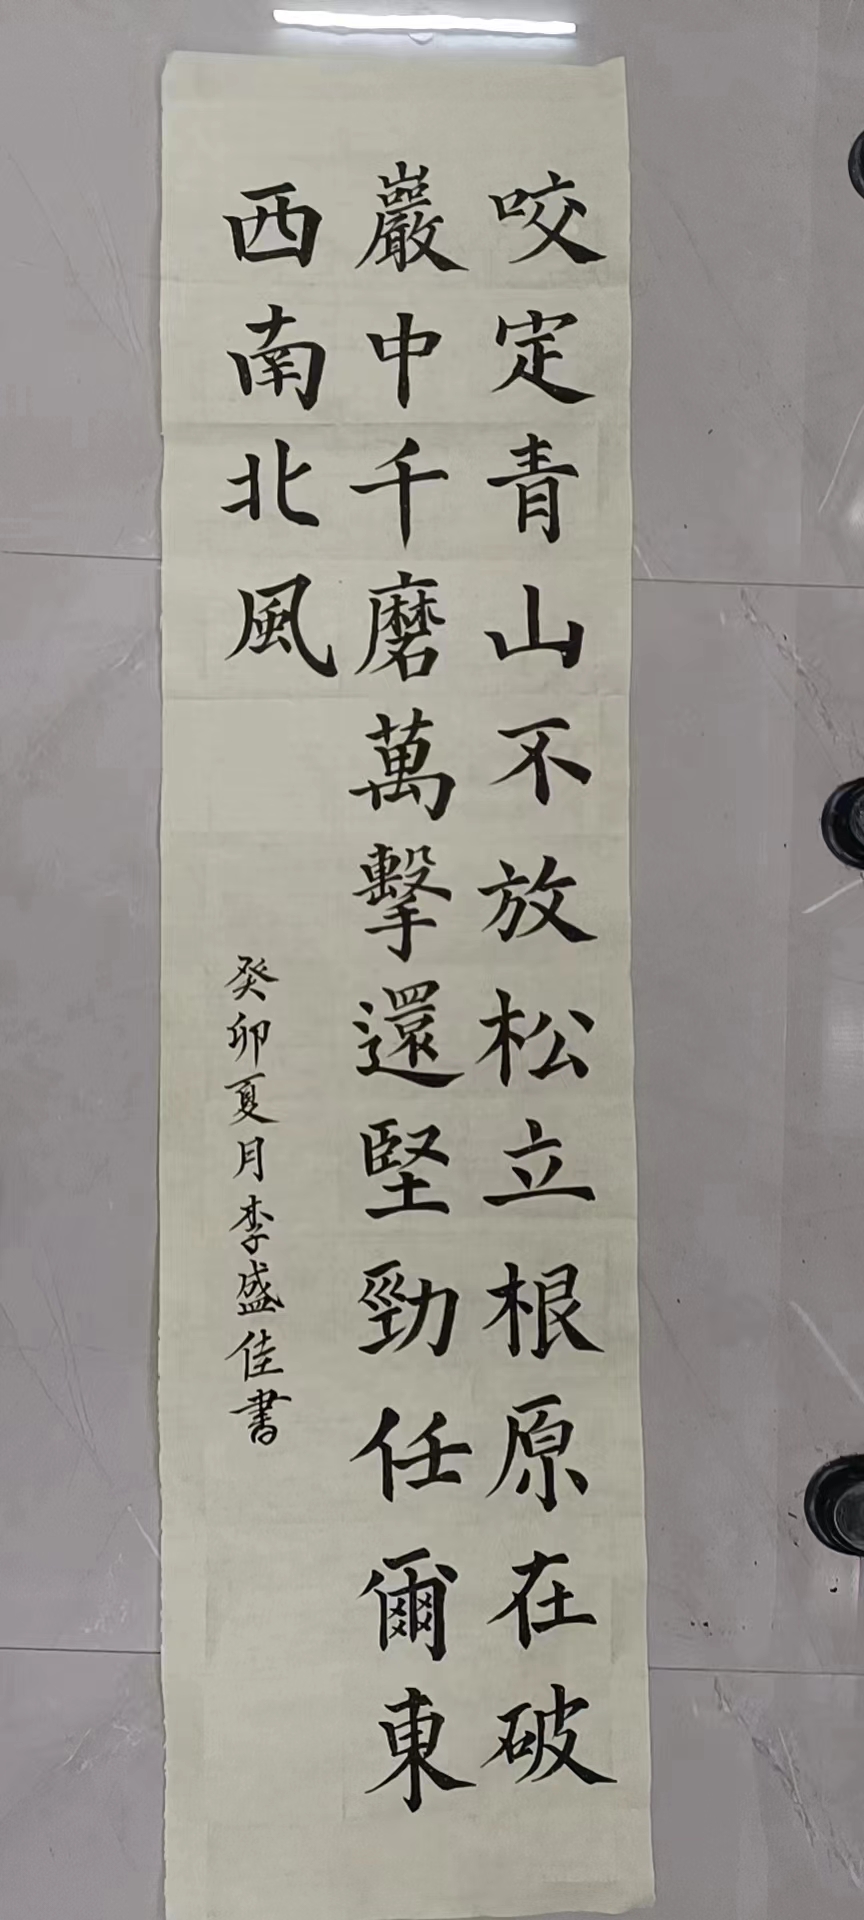 咬定青山不放松立根原在破
巖中千磨萬擊還堅勁任爾東
西南北風
癸卯夏月李盛佳書